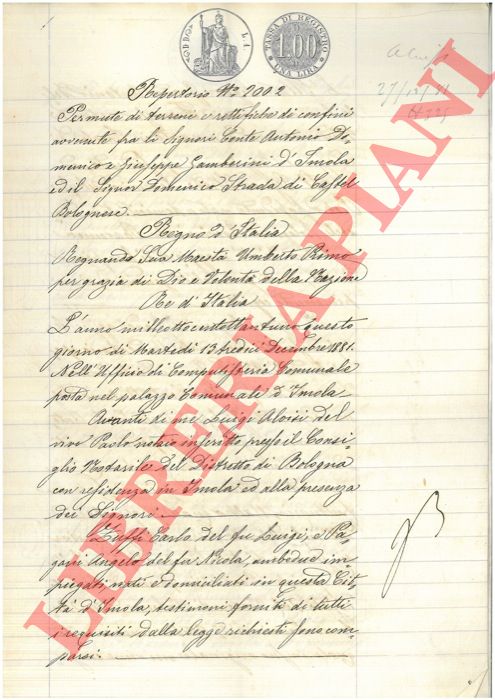 TASSA DI REGISTRO
1.00
UNA LIRA
27/12/81
Repertorio N.º 2002
Permute di terreni e rettifiche di confini
avvenute fra li Signori Conte Antonio Do-
menico e Giuseppe Gamberini d'Imola
ed il Signor Domenico Strada di Castel
Bolognese.
Regno d'Italia
Regnando Sua Maestà Umberto Primo
per grazia di Dio e Volontà della Nazione
Re d'Italia
L'anno milleottocentottantuno questo
giorno di Martedì 13 tredici Decembre 1881.
Nell'Ufficio di Computisteria Comunale
posta nel palazzo Comunale d'Imola
Avanti di me Luigi Aloisi del
vivo Paolo notaio inscritto presso il Consi-
glio Notarile del Distretto di Bologna
con residenza in Imola ed alla presenza
dei Signori.
Zuffi Carlo del fu Luigi, e Pa-
gani Angelo del fu Nicola, ambidue im-
piegati nati e domiciliati in questa Cit-
tà d'Imola, testimoni forniti di tutti
i requisiti dalla legge richiesti sono com-
parsi.
LIBRERIA PIANI